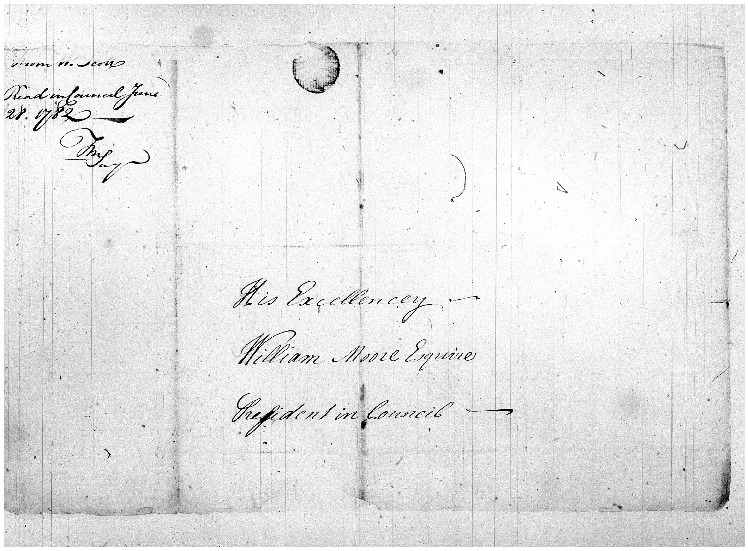 from W. Scott
Read in Council June
28. 1782
His Excellencey
William Moore Esquire
President in Council